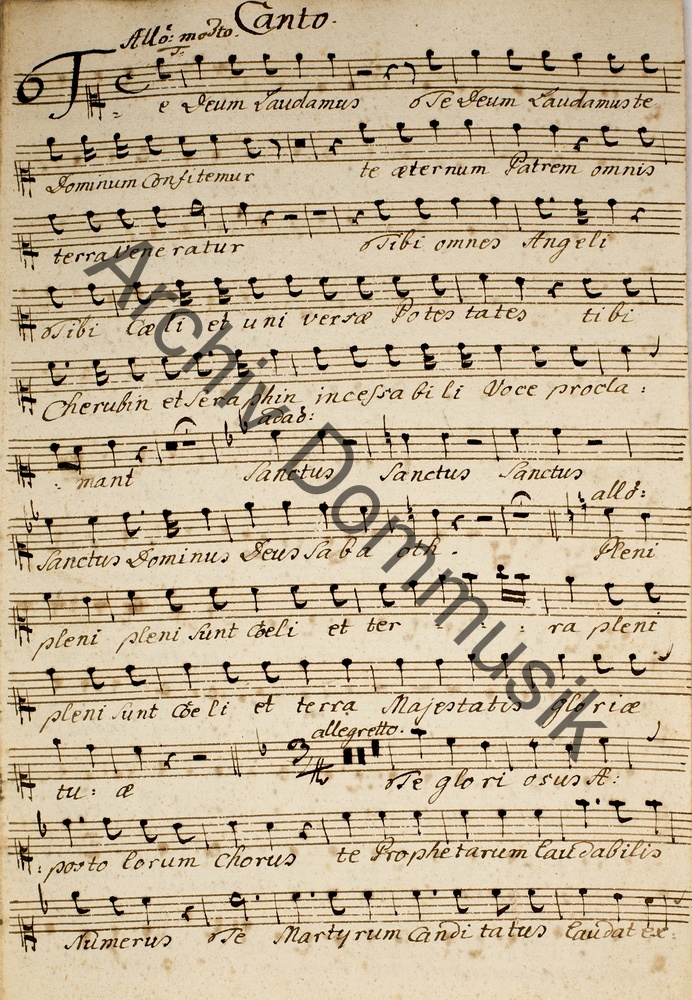 Canto.
Allo: modto.
Te Deum Laudamus Te Deum Laudamus te
Dominum Confitemur te æternum Patrem omnis
terra Veneratur Tibi omnes Angeli
Tibi Cæli et universæ Potestates tibi
Cherubin et Seraphin incessabili Voce procla:
adaō:
: mant Sanctus Sanctus Sanctus
allō:
Sanctus Dominus Deus Sabaoth. Pleni
pleni pleni sunt Cœli et ter - - : ra pleni
pleni sunt Cœli et terra Majestatis gloriæ
allegretto.
tu: æ Te gloriosus A:
: postolorum Chorus te Prophetarum laudabilis
Numerus Te Martyrum Canditatus laudat ex:
Archiv Dommusik